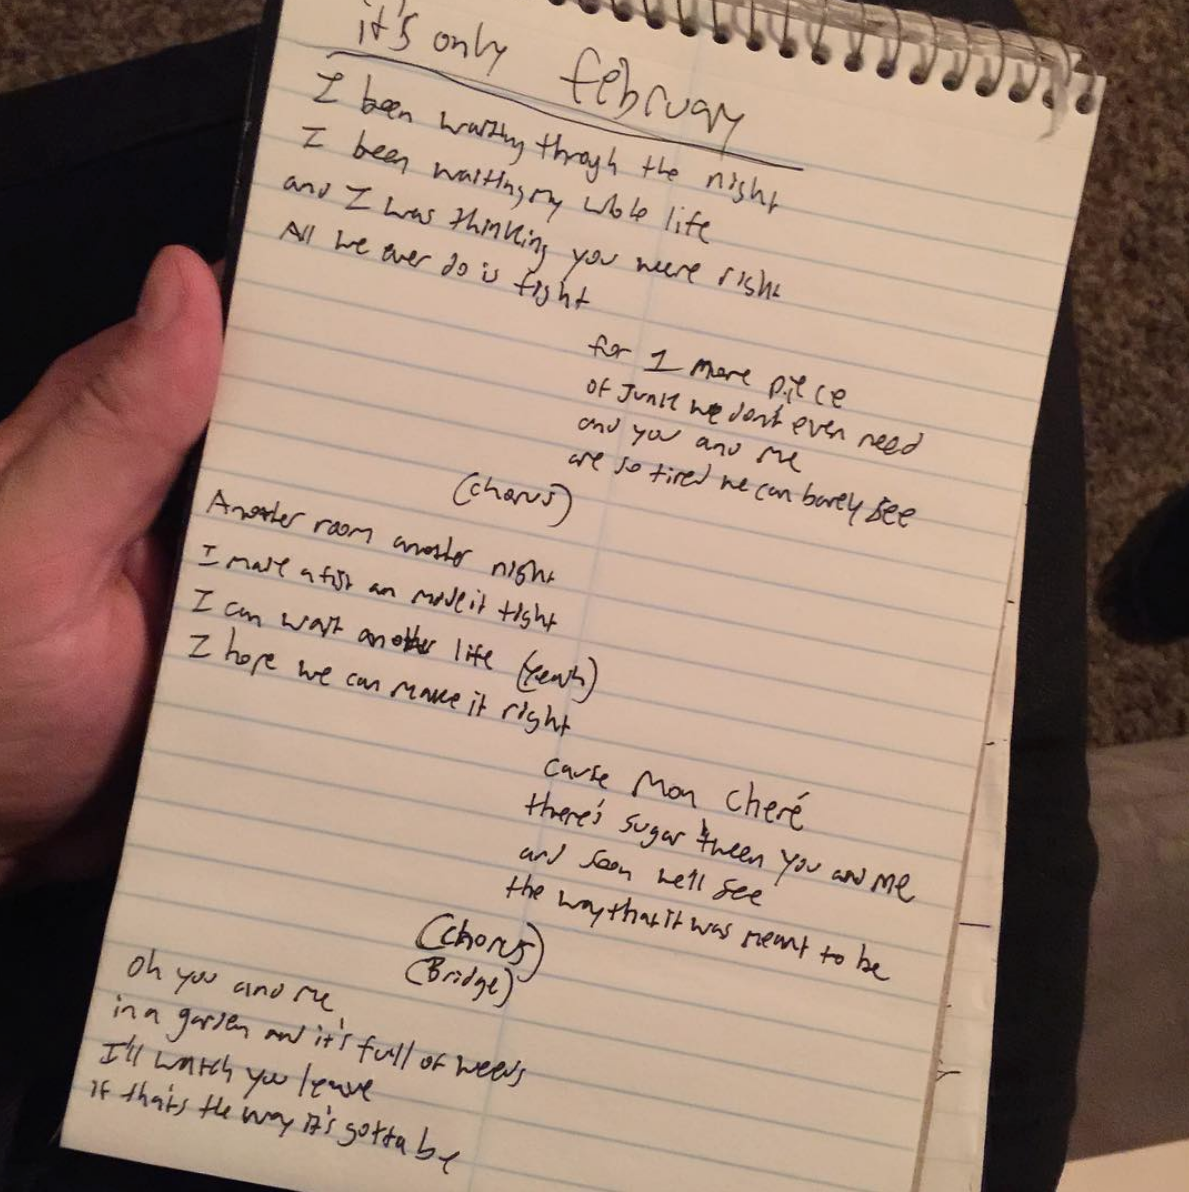 it's only february
I been waiting throgh the night
I been waiting my whole life
and I was thinking you were right
All we ever do is fight
for 1 more piece
of junk we don't even need
and you and me
are so tired we can barely see
(chorus)
Another room another night
I make a fist an make it tight
I can wait another life (yeah)
I hope we can make it right
cause Mon cheré
there's sugar 'tween you and me
and soon we'll see
the way that it was meant to be
(chorus)
(Bridge)
Oh you and me
in a garden and it's full of weeds
I'll watch you leave
if that's the way it's gotta be